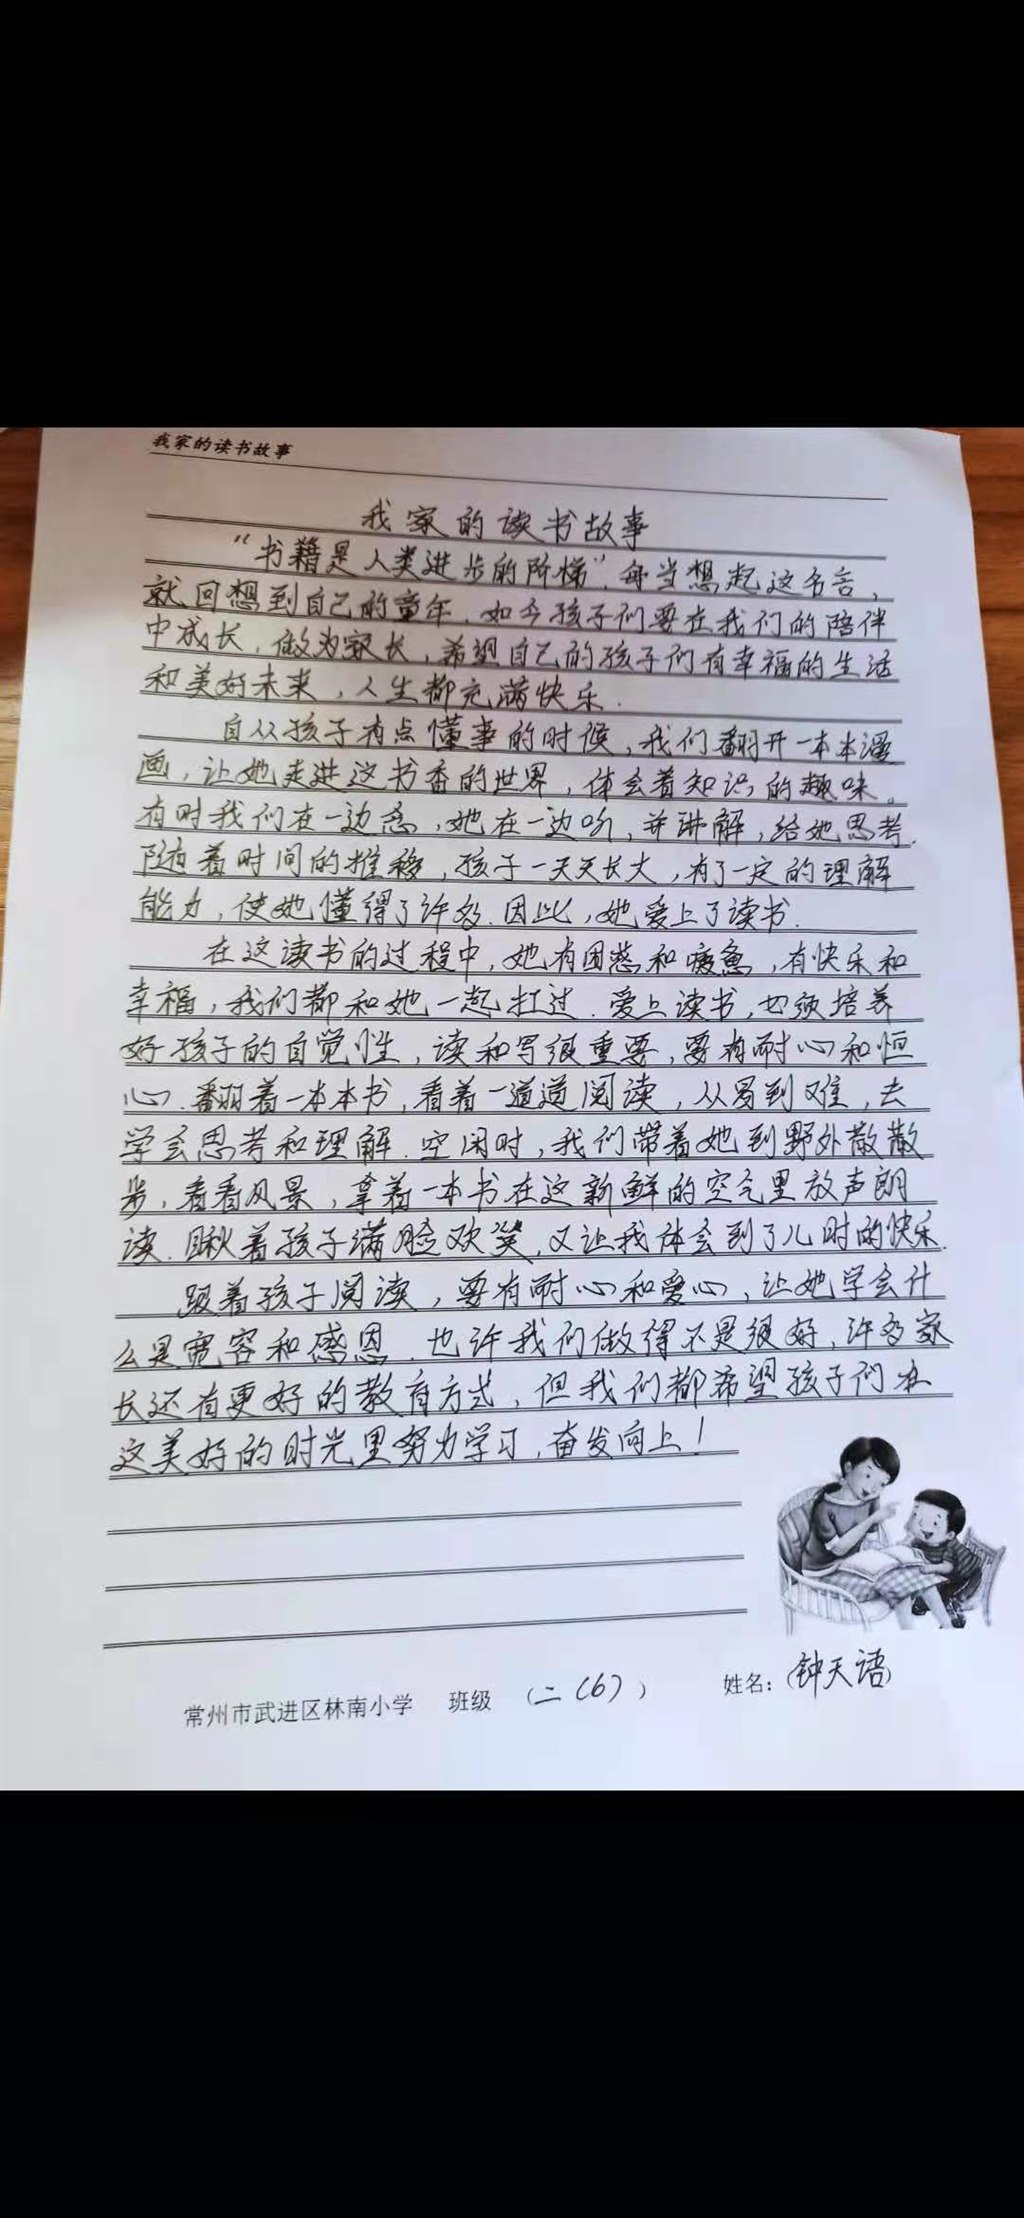 我家的读书故事
我家的读书故事
“书籍是人类进步的阶梯”.每当想起这名言，
就回想到自己的童年.如今孩子们要在我们的陪伴
中成长，做为家长，希望自己的孩子们有幸福的生活
和美好未来，人生都充满快乐.
自从孩子有点懂事的时候，我们翻开一本本漫
画，让她走进这书香的世界，体会着知识的趣味。
有时我们在一边念，她在一边听，并讲解，给她思考.
随着时间的推移，孩子一天天长大，有了一定的理解
能力，使她懂得了许多.因此，她爱上了读书.
在这读书的过程中，她有困惑和疲惫，有快乐和
幸福，我们都和她一起扛过.爱上读书，必须培养
好孩子的自觉性，读和写很重要，要有耐心和恒
心.翻着一本本书，看着一道道阅读，从易到难，去
学会思考和理解.空闲时，我们带着她到野外散散
步，看看风景，拿着一本书在这新鲜的空气里放声朗
读.瞅着孩子满脸欢笑，又让我体会到了儿时的快乐.
跟着孩子阅读，要有耐心和爱心，让她学会什
么是宽容和感恩.也许我们做得不是很好，许多家
长还有更好的教育方式，但我们都希望孩子们在
这美好的时光里努力学习，奋发向上！
常州市武进区林南小学 班级 （二（6））  姓名：（钟天语）